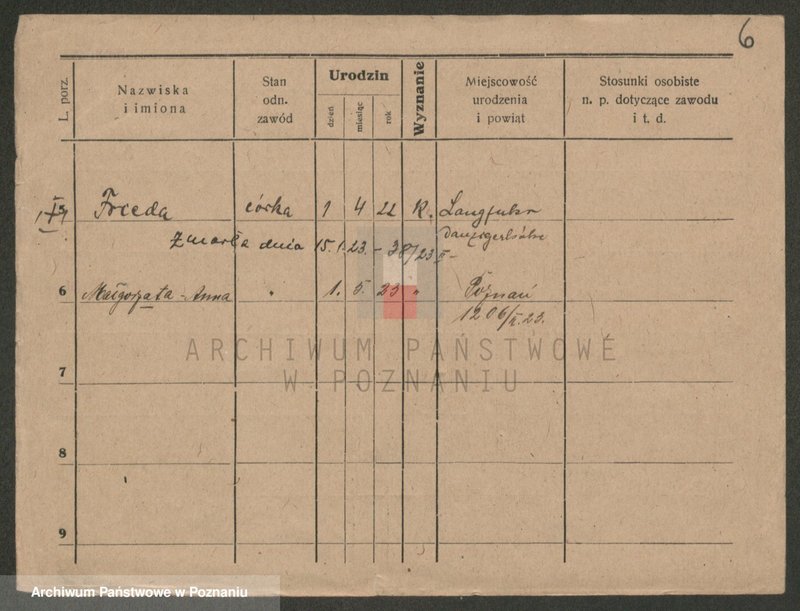 6
L. porz.
Nazwiska
i imiona
Stan
odn.
zawód
Urodzin
dzień
miesiąc
rok
Wyznanie
Miejscowość
urodzenia
i powiat
Stosunki osobiste
n. p. dotyczące zawodu
i t. d.
Frieda córka 1 4 22 K. Langfuhr
Zmarła dnia 15. 1. 23. - 38/23 II-
6 Małgorzata-Anna " 1. 5. 23 " Poznań
1206/II.23.
7
8
9
ARCHIWUM PAŃSTWOWE
W POZNANIU
Archiwum Państwowe w Poznaniu